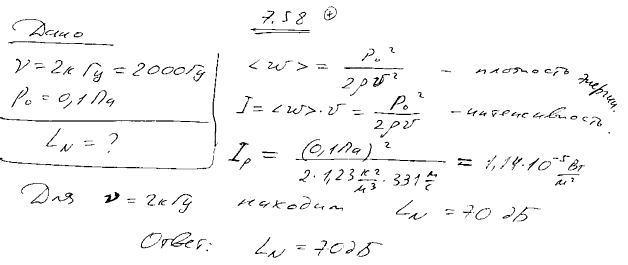 7.58 ⊕
Дано
ν = 2кГц = 2000Гц
P₀ = 0,1 Па
L_N = ?
<w> = P₀² / 2ρv² - плотность энергии.
I = <w>·v = P₀² / 2ρv - интенсивность.
I_p = (0,1 Па)² / 2·1,23 кг/м³ · 331 м/с = 1,14·10⁻⁵ Вт/м²
Для ν = 2кГц находим L_N = 70 дБ
Ответ: L_N = 70 дБ